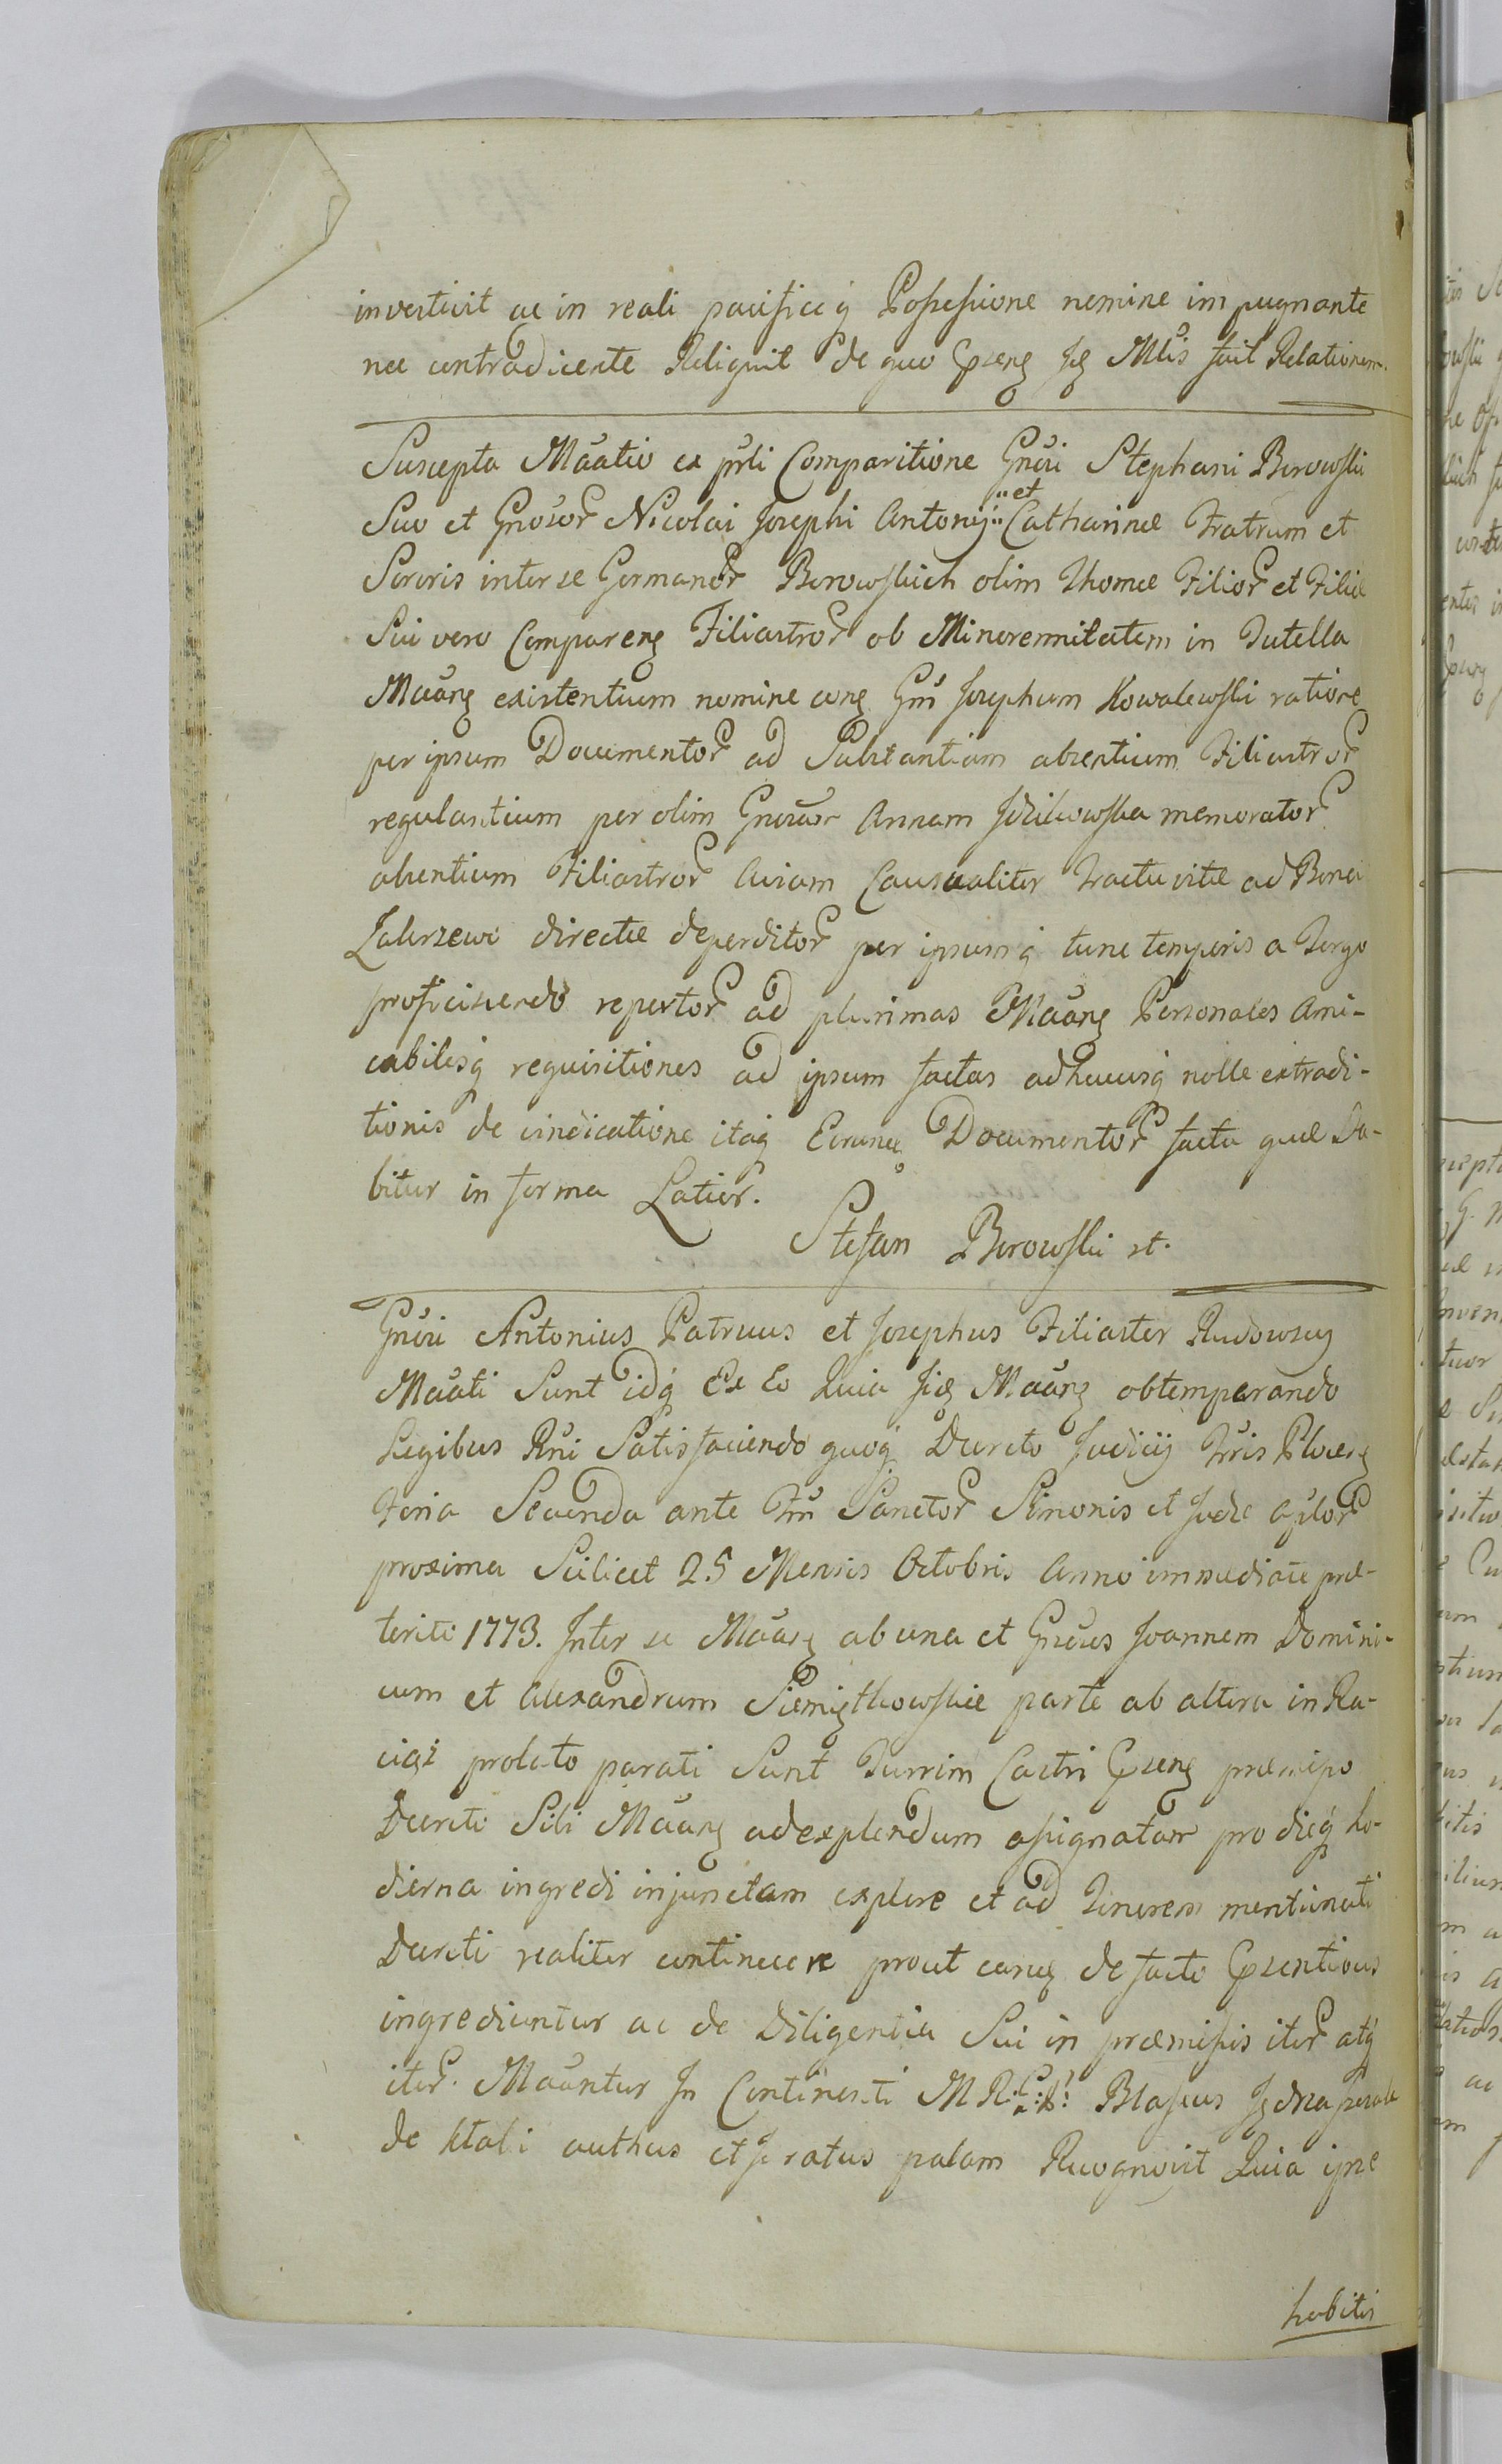 investivit ac in reali pacificq́ Possessione nemine impugnante
nec contradicente Reliquit de quo Cpareng Jg Mlis fait Relationem.
Suscepta Māātio ex prli Comparitione Gnri Stephani Borowski
Suo et Gnosor Nicolai Josephi Antonij et Catharinæ Fratrum et
Sororis inter se Germanor Borowskich olim Thomæ Filior et Filiæ
Sui vero Compareng Filiastror ob Minorennitatem in Tutella
Māāng existentium nomine cong Gm Josephum Kowalewski ratione
per ipsum Documentor ad Substantiam absentium Filiastror
regulantium per olim Gnosam Annam memorator
absentium Filiastror Aviam Causualiter tractu vitæ ad Bona
Zakrzewo directæ deperditor per ipsumq́ tunc temporis a Tergo
proficiscendo repertor ad plurimas Māāng Personales Ami-
cabilesq́ requisitiones ad ipsum factas adhucusq́ nolle extradi-
tionis de vindicatione itaq́ Eorunq Documentor facta quæ Da-
bitur in forma Latior.
Stefan Borowski
Gnŕi Antonius Patruus et Josephus Filiaster Rudowscy
Māāti Sunt idq́ Ex Eo Quia Māāng obtemperando
Legibus Rni Satisfaciendo quoq́ Decreto Judicij Tris Ploceng
Feria Secunda ante Ftm Sanctor Simonis et Judæ Aplor
proxima Scilicet 25 Mensis Octobris Anno immediate præ-
teriti 1773. Inter se Māāng ab una et Gnosos Joannem Domini-
cum et Alexandrum Siemiątkowskie parte ab altera in Ra-
ciąż prolato parati Sunt Turrim Castri Cpseng præmisso
Decreti Sibi Māāng adexplendum assignatam pro dieq́ ho-
dierna ingredi injunctam explere et ad Tenorem mentionati
Decreti realiter continuere prout eanq de facto Cpsentious
ingrediuntur ac de Diligentia Sui in præmissis iter atq́
iter. Māāntur In Continenti M R: Blasius
de Ktali authus et Juratus palam Recognovit Quia ipse
habitis